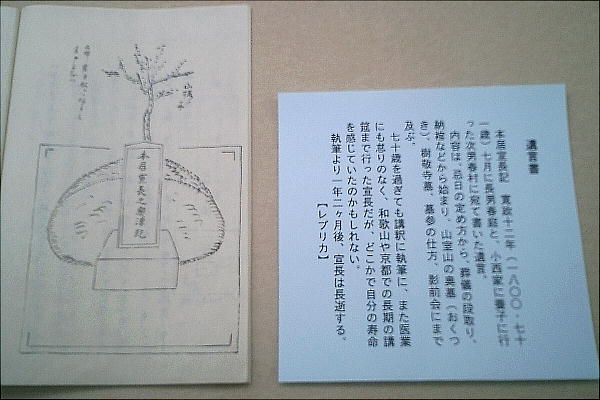 山桜之木
本居宣長之奥津紀
遺言書
本居宣長記 寛政十二年(一八〇〇・七十
一歳)七月に長男春庭と、小西家に養子に行
った次男春村に宛て書いた遺言。
内容は、忌日の定め方から、葬儀の段取り、
納棺などから始まり、山室山の奥墓(おくつ
き)、樹敬寺墓、墓参の仕方、影前会にまで
及ぶ。
七十歳を過ぎても講釈に執筆に、また医業
にも怠りのなく、和歌山や京都での長期の講
筵まで行った宣長だが、どこかで自分の寿命
を感じていたのかもしれない。
執筆より一年二ヶ月後、宣長は長逝する。
【レプリカ】